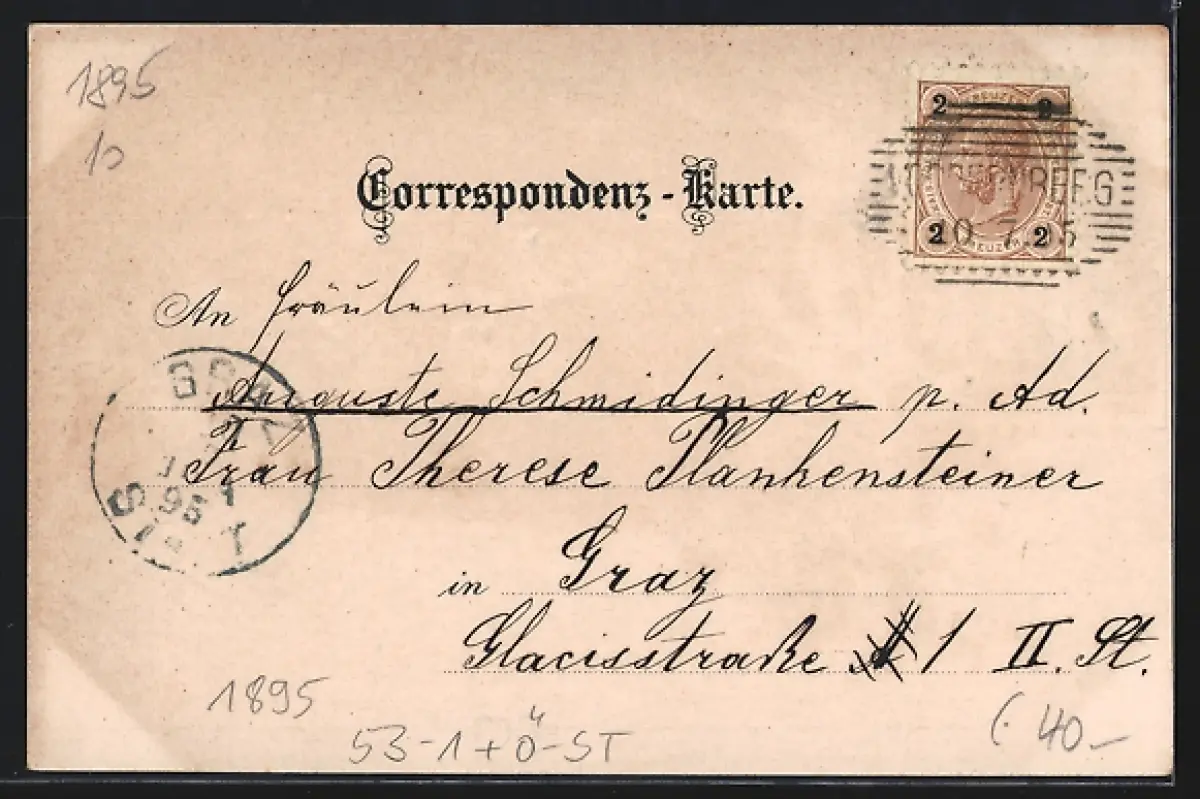 1895
Correspondenz-Karte.
2 KREUZER 2
10 7 95
2 KREUZER 2
An Fräulein
Auguste Schmidinger p. Ad.
Frau Therese Plankensteiner
GRAZ
95
STADT
in Graz
Glacisstraße 1 II. St.
1895
53-1+Ö-ST
(40-